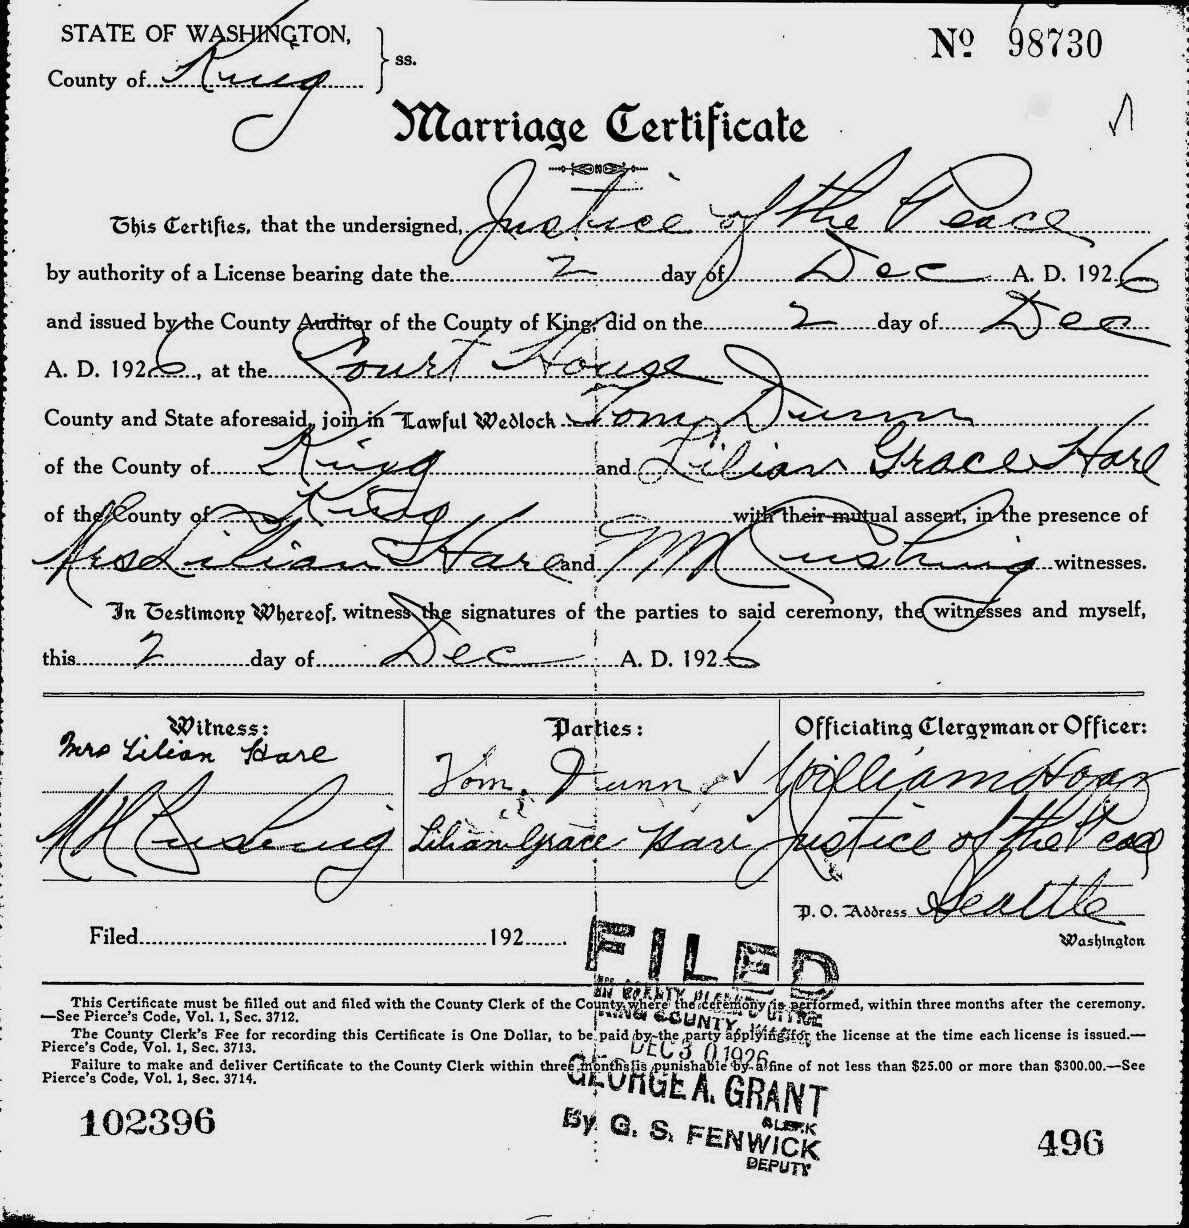 STATE OF WASHINGTON,
County of King } ss.
No 98730
Marriage Certificate
This Certifies, that the undersigned, Justice of the Peace
by authority of a License bearing date the 2 day of Dec A. D. 1926
and issued by the County Auditor of the County of King, did on the 2 day of Dec
A. D. 1926, at the Court House
County and State aforesaid, join in Lawful Wedlock Tom Dunn
of the County of King and Lilian Grace Hare
of the County of King with their mutual assent, in the presence of
Mrs Lilian Hare and Cushing witnesses.
In Testimony Whereof, witness the signatures of the parties to said ceremony, the witnesses and myself,
this 2 day of Dec A. D. 1926
Witness:
Mrs Lilian Hare
Cushing
Parties:
Tom Dunn
Lilian Grace Hare
Officiating Clergyman or Officer:
William Hoar
Justice of the Peace
P. O. Address Seattle
Washington
Filed 192
FILED
IN COUNTY CLERK'S OFFICE
KING COUNTY, WASH.
DEC 30 1926
GEORGE A. GRANT
CLERK
By G. S. FENWICK
DEPUTY
This Certificate must be filled out and filed with the County Clerk of the County where the ceremony is performed, within three months after the ceremony.
—See Pierce's Code, Vol. 1, Sec. 3712.
The County Clerk's Fee for recording this Certificate is One Dollar, to be paid by the party applying for the license at the time each license is issued.—
Pierce's Code, Vol. 1, Sec. 3713.
Failure to make and deliver Certificate to the County Clerk within three months is punishable by a fine of not less than $25.00 or more than $300.00.—See
Pierce's Code, Vol. 1, Sec. 3714.
102396
496